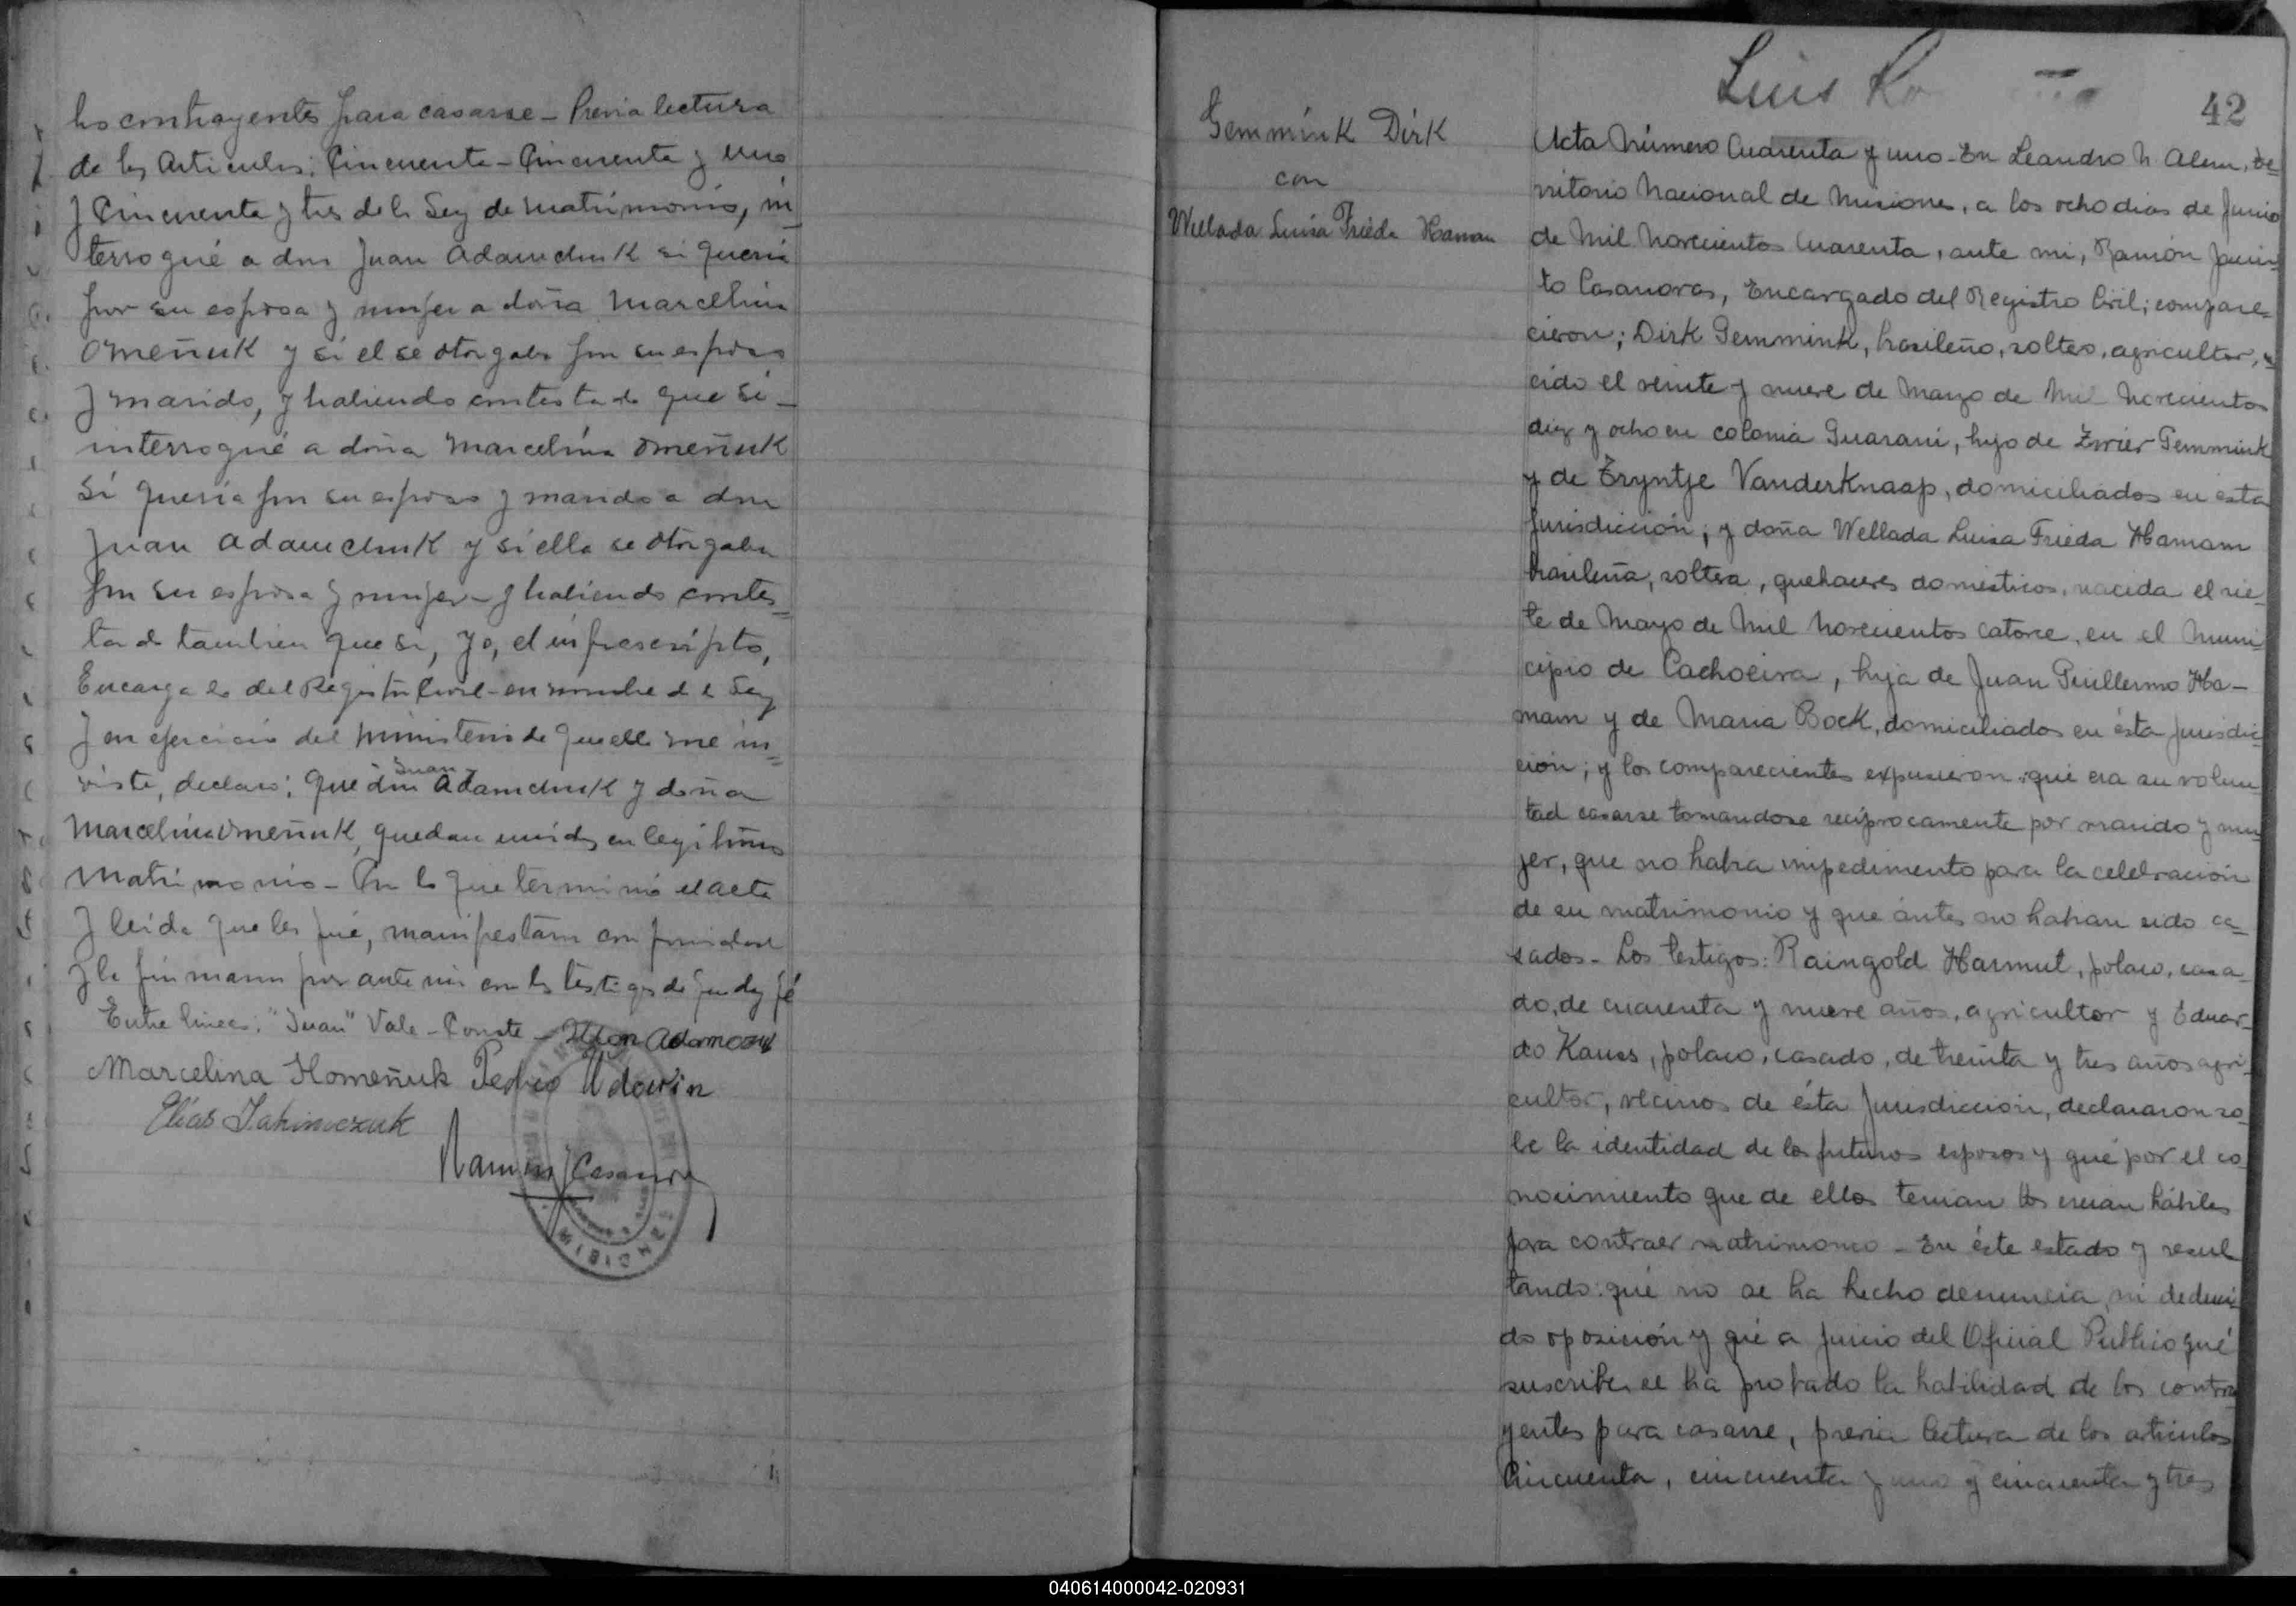 los contrayentes para casarse - Previa lectura
de los Articulos: Cincuenta - Cincuenta y uno
y Cincuenta y tres de la Ley de Matrimonio, in-
terrogué a don Juan Adamchuk si queria
por su esposa y mujer a doña Marcelina
Omeñuk y si el se otorgaba por su esposo
y marido, y habiendo contestado que si -
interrogué a doña Marcelina Omeñuk
si queria por su esposo y marido a don
Juan Adamchuk y si ella se otorgaba
por su esposa y mujer - y habiendo contes=
tado tambien que si, yo, el infrascripto,
Encargado del Registro Civil - en nombre de la Ley
y en ejercicio del ministerio de que ella me in=
viste, declaro: Que don Juan Adamchuk y doña
Marcelina Omeñuk, quedan unidos en legitimo
Matrimonio - Con lo que terminó el acta
y leida que les fué, manifestaron conformidad
y la firmaron por ante mi con los testigos de que doy fé
Entre lineas: "Juan" Vale - Conste -
Marcelina Homeñuk Pedro Udovin
Elías Jakimczuk
Ramón J Casanova
Luis
42
Gemmink Dirk
con
Wellada Luisa Frieda Haman
Acta Número Cuarenta y uno - En Leandro N. Alem, Te-
rritorio Nacional de Misiones, a los ocho dias de Junio
de Mil Novecientos Cuarenta, ante mi, Ramón Jacin-
to Casanovas, Encargado del Registro Civil; compare-
cieron; Dirk Gemmink, brasileño, soltero, agricultor, na-
cido el veinte y nueve de Marzo de Mil Novecientos
diez y ocho en colonia Guarani, hijo de Zwier Gemmink
y de Tryntje Vanderknaap, domiciliados en esta
Jurisdiccion; y doña Wellada Luisa Frieda Hamam
brasileña, soltera, quehaceres domésticos, nacida el sie-
te de Mayo de Mil Novecientos Catorce, en el Muni
cipio de Cachoeira, hija de Juan Guillermo Ha-
mam y de Maria Bock, domiciliados en ésta Jurisdic-
ción; y los comparecientes expusieron: qué era su volun-
tad casarse tomandose recíprocamente por marido y mu
jer, que no habia impedimento para la celebracion
de su matrimonio y que ántes no habian sido ca-
sados - Los testigos: Raingold Harmut, polaco, casa
do, de cuarenta y nueve años, agricultor y Eduar-
do Kauss, polaco, casado, de treinta y tres años agri-
cultor, vecinos de ésta Jurisdicción, declararon so
bre la identidad de los futuros esposos y qué por el co
nocimiento que de ellos tenian los creian hábiles
para contraer matrimonio - En éste estado y resul
tando: qué no se ha hecho denuncia, ni deduci-
do oposición y qué a Juicio del Oficial Público qué
suscribe se ha probado la habilidad de los contra
yentes para casarse, previa lectura de los articulos
Cincuenta, cincuenta y uno y cincuenta y tres
040614000042-020931